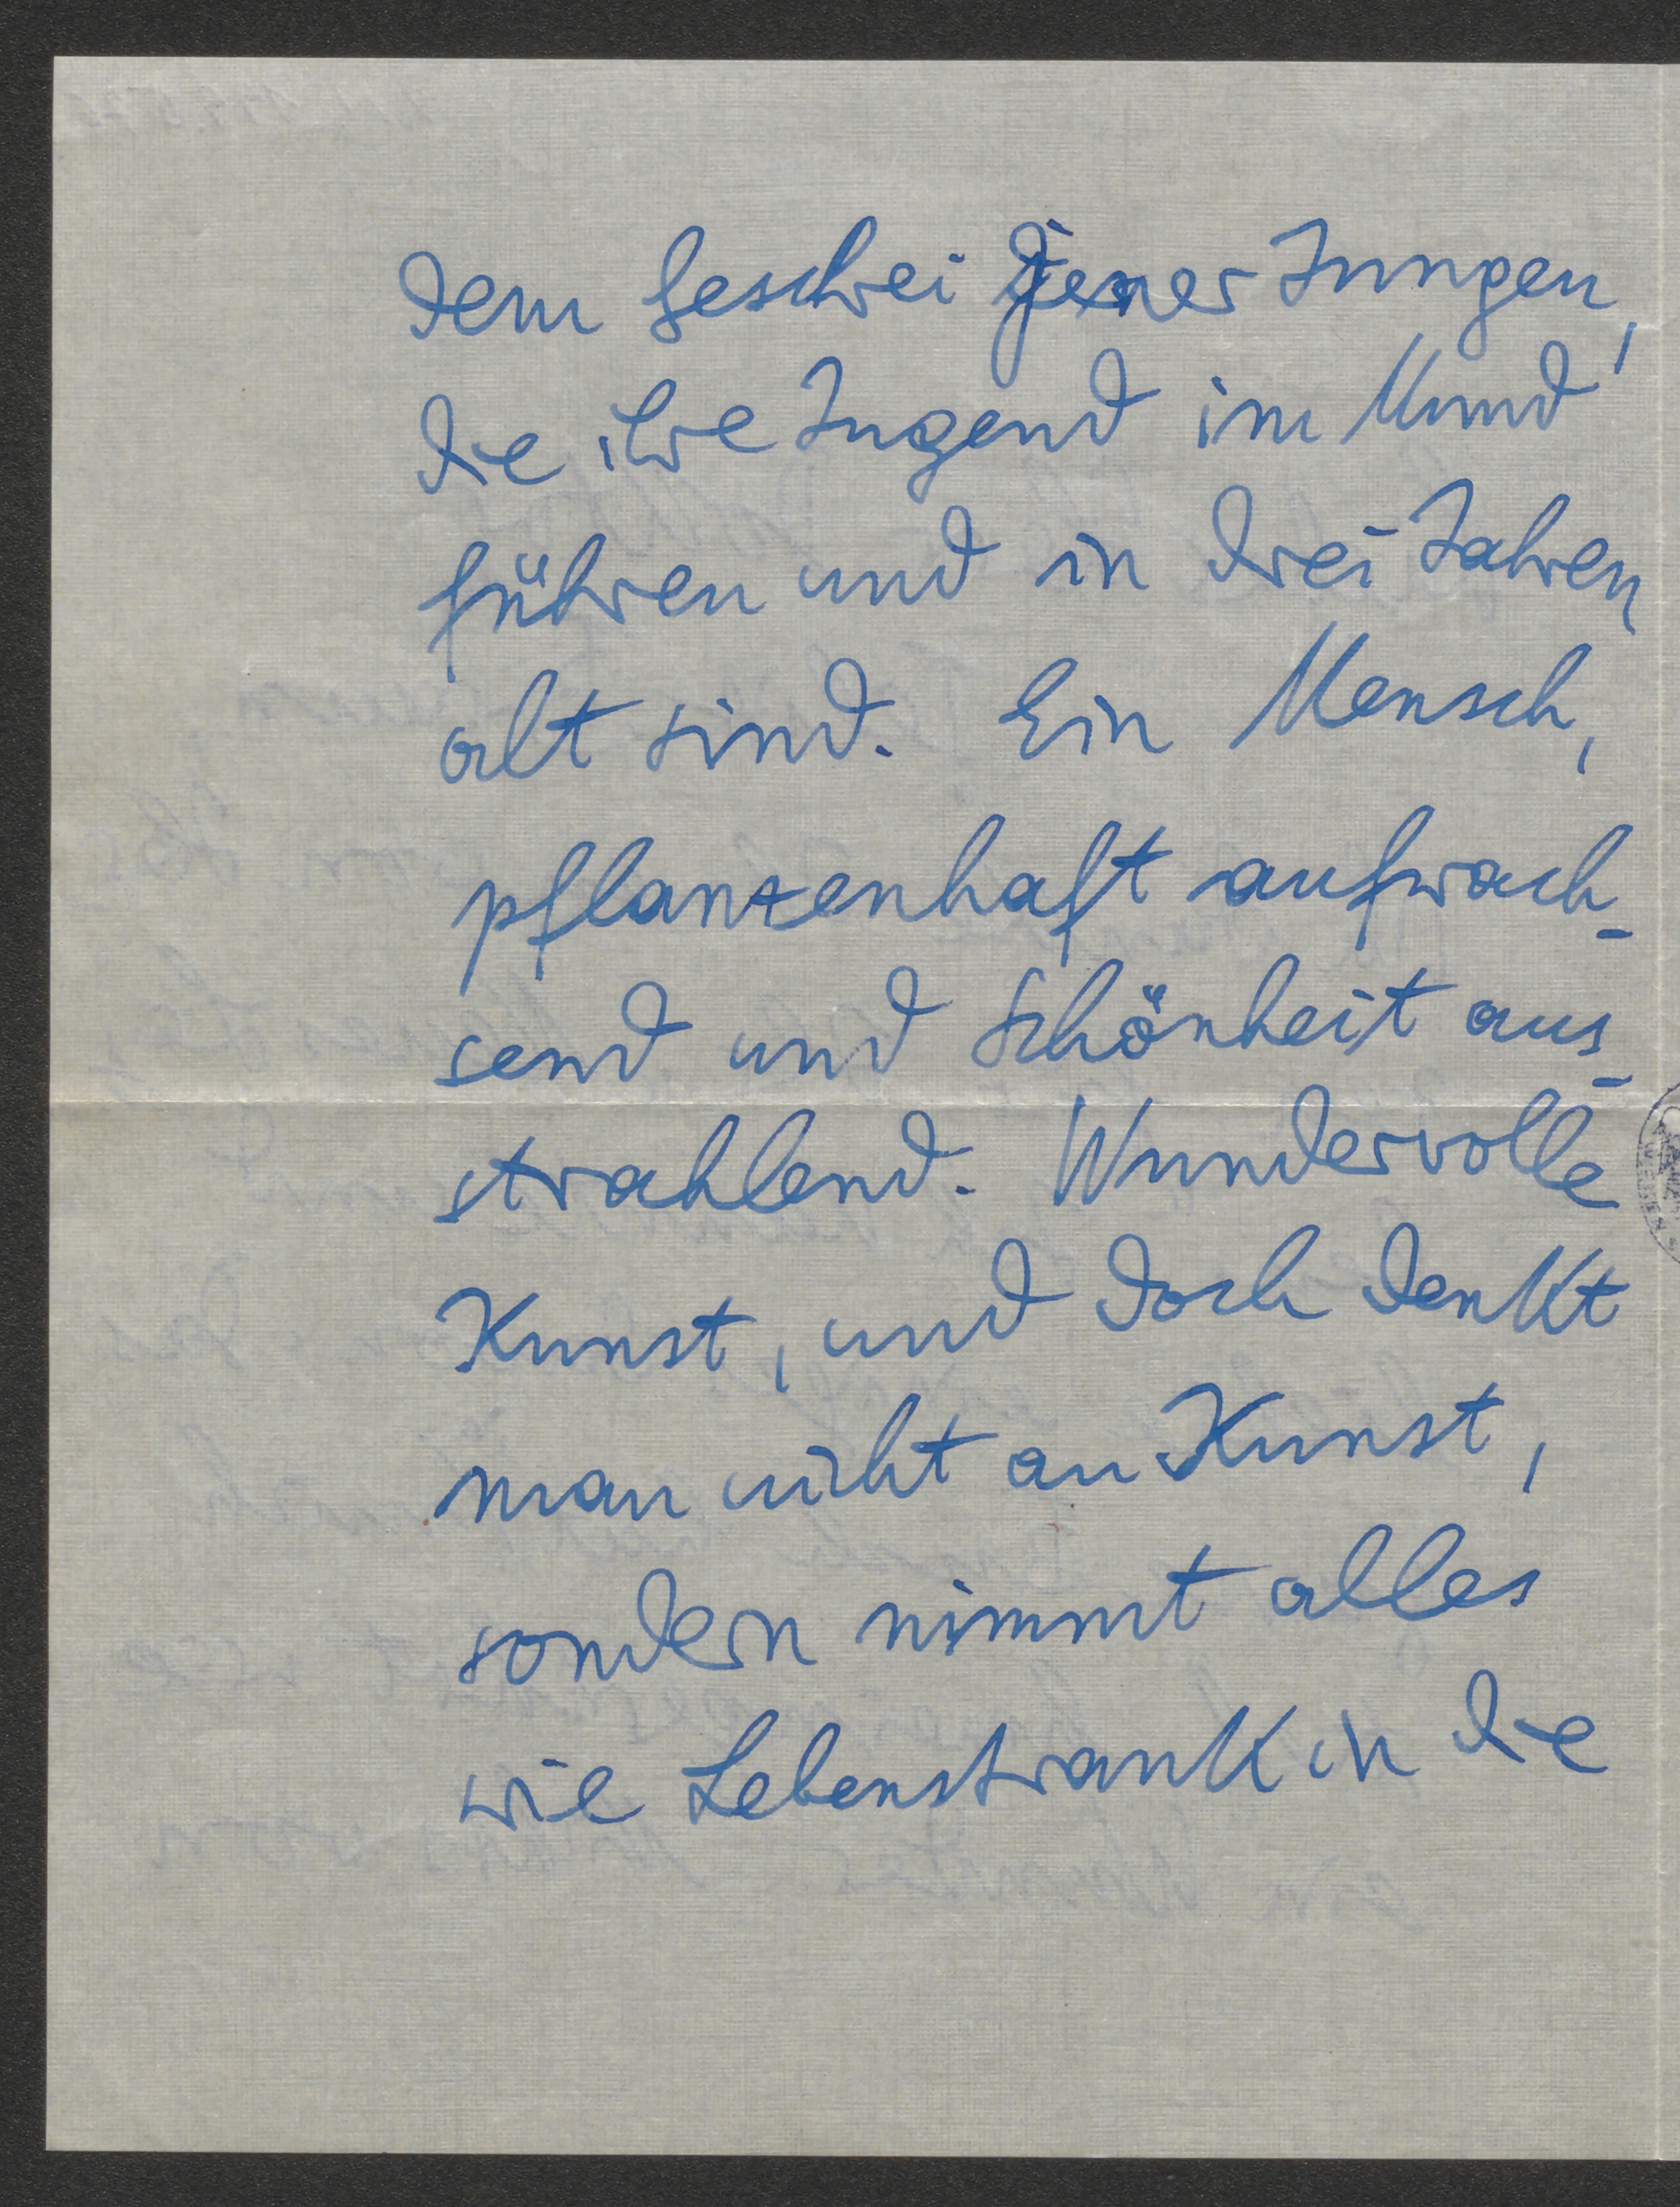 dem Geschrei jener Jungen,
die ihre Jugend im Mund
führen und in drei Jahren
alt sind. Ein Mensch,
pflanzenhaft aufwach-
send und Schönheit aus-
strahlend. Wundervolle
Kunst, und doch denkt
man nicht an Kunst,
sondern nimmt alles
wie Lebenstrank in die